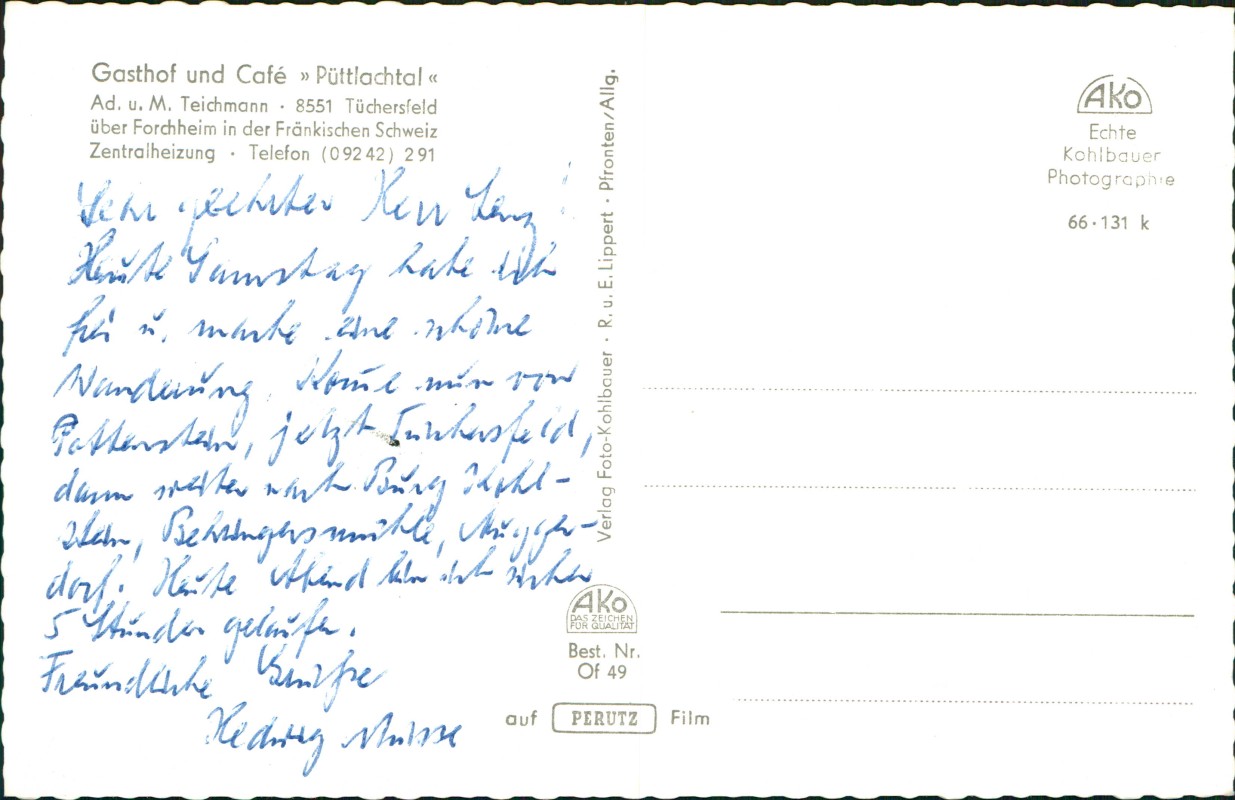 Gasthof und Café »Püttlachtal«
Ad. u. M. Teichmann · 8551 Tüchersfeld
über Forchheim in der Fränkischen Schweiz
Zentralheizung · Telefon (09242) 291
Sehr geehrter Herr Lenz!
Heute Samstag habe ich
frei u. mache eine schöne
Wanderung. Komme nun von
Pottenstein, jetzt Tüchersfeld,
dann weiter nach Burg Kohl-
stein, Behringersmühle, Mugger-
dorf. Heute Abend bin ich sicher
5 Stunden gelaufen.
Freundliche Grüße
Hedwig
Verlag Foto-Kohlbauer · R. u. E. Lippert · Pfronten/Allg.
AKO
DAS ZEICHEN
FÜR QUALITÄT
Best. Nr.
Of 49
auf PERUTZ Film
AKO
Echte
Kohlbauer
Photographie
66·131 k